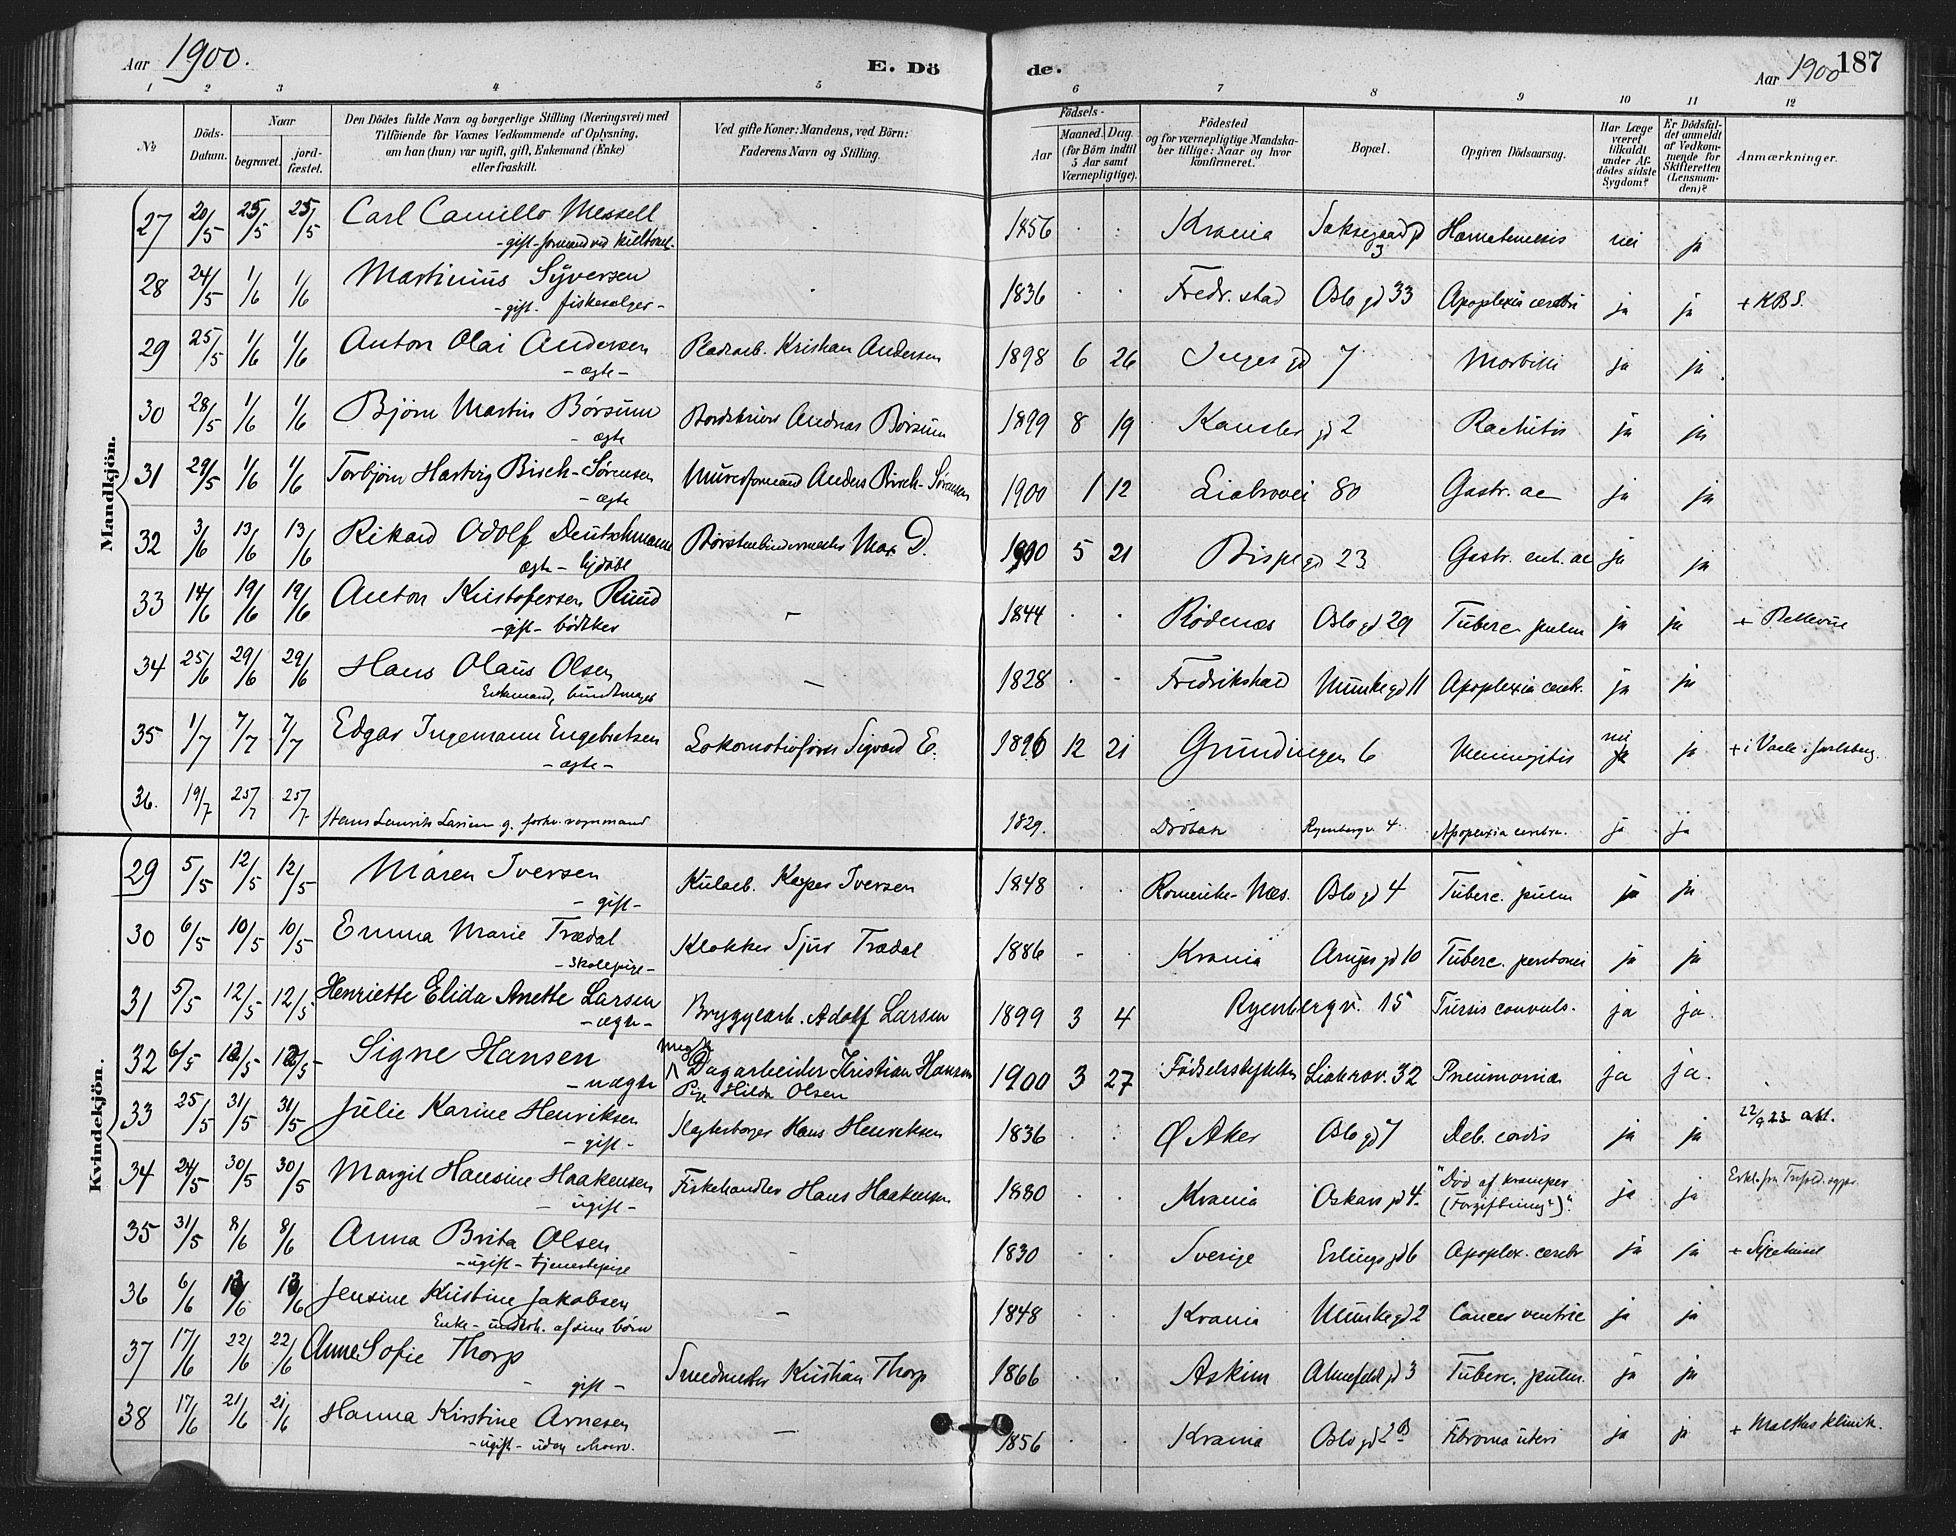 Aar 1900.
E. Dö
de.
Aar 1900
187
1 2 3 4 5 6 7 8 9 10 11 12
№
Döds-Datum.
Naar
begravet.
jord-fæstet.
Den Dödes fulde Navn og borgerlige Stilling (Næringsvei) med
Tilföiende for Voxnes Vedkommende af Oplysning,
om han (hun) var ugift, gift, Enkemand (Enke)
eller fraskilt.
Ved gifte Koner: Mandens, ved Börn:
Faderens Navn og Stilling.
Födsels-
Aar
Maaned.
Dag.
(for Börn indtil
5 Aar samt
Værnepligtige).
Födested
og for værnepligtige Mandska-
ber tillige: Naar og hvor
konfirmeret.
Bopæl.
Opgiven Dödsaarsag.
Har Læge
været
tilkaldt
under Af-
dödes sidste
Sygdom?
Er Dödsfal-
det anmeldt
af Vedkom-
mende for
Skifteretten
(Lensman-
den)?
Anmærkninger.
Mandkjön.
27 20/5 25/5 25/5 Carl Camillo Messell 1856 Krania Saksegaard gd 3 Hæmatemesis nei ja
- gift - formand ved
28 24/5 1/6 1/6 Martinius Syversen 1836 Fredr.stad Oslo gd 33 Apoplexia cerebri ja ja + KBS.
- gift - fiskesælger -
29 25/5 1/6 1/6 Anton Olai Andersen Pladsarb. Kristian Andersen 1898 6 26 Inges gd 7 Morbilli ja ja
- ægte -
30 28/5 1/6 1/6 Bjørn Martin Børsum Andreas Børsum 1899 8 19 Kansler gd 2 Rachitis ja ja
- ægte
31 29/5 1/6 1/6 Torbjørn Hartvig Birch-Sørensen Murerformand Anders Birch-Sørensen 1900 1 12 Liabrovei 80 Gastr. ac ja ja
- ægte
32 3/6 13/6 13/6 Rikard Adolf Deutschmann Børstenbindermester Max D. 1900 5 21 Bispe gd 23 Gastr. ent. ac ja ja
ægte - hjdøbt
33 14/6 19/6 19/6 Anton Kristofersen Ruud - 1844 Rødenæs Oslo gd 29 Tuberc. pulm ja ja + Bellevue
- gift - bødtker
34 25/6 29/6 29/6 Hans Olaus Olsen - 1828 Fredrikstad Munke gd 11 Apoplexia cerebr. ja ja
Enkemand, buntmager
35 1/7 7/7 7/7 Edgar Ingemann Engebretsen Lokomotivfører Sigvard E. 1896 12 21 Grundingen 6 Meningitis nei ja + i Vaale i Jarlsberg.
- ægte -
36. 19/7 25/7 25/7 Hans Laurits Larsen g. forhv. vognmand 1829. Drøbak Ryenbergv. 4. Apoplexia cerebri. ja ja
Kvindekjön.
29 5/5 12/5 12/5 Maren Iversen Kularb. Kasper Iversen 1848 Romerike - Næs. Oslo gd 4 Tuberc. pulm ja ja
- gift -
30 6/5 10/5 10/5 Emma Marie Trædal Klokker Sjur Trædal 1886 Krania Arups gd 10 Tuberc. peritonei ja ja
- skolepige -
31 5/5 12/5 12/5 Henriette Elida Anette Larsen Bryggearb. Adolf Larsen 1899 3 4 Ryenbergv. 15 Tussis convuls. ja ja.
- ægte -
32 6/5 12/5 12/5 Signe Hansen Dagarbeider Kristian Hansen 1900 3 27 Fødselsstiftelsen Liabrov. 32 Pneumonia ja ja.
- uægte Pige Hilda Olsen
33 25/5 31/5 31/5 Julie Karine Henriksen Hans Henriksen 1836 Ø Aker Oslo gd 7 Deb. cordis ja ja 22/9 23 att.
- gift -
34 24/5 30/5 30/5 Margit Hansine Haakensen Fiskehandler Hans Haakensen 1880 Krania Oskars gd 4. "Død af kramper (Forgiftning?)". ja ja
- ugift -
35 31/5 8/6 8/6 Anna Brita Olsen - 1830 Sverige Erlings gd 6 Apoplex. cerebr ja ja + Sygehuset
- ugift - tjenestepige
36 6/6 13/6 13/6 Jensine Kristine Jakobsen - 1848 Krania Munke gd 2 Cancer ventric ja ja
Enke - undersh. af sine børn
37 17/6 22/6 22/6 Anne Sofie Thorp Smedmester Kristian Thorp 1866 Askim Ahnefeldt gd 3 Tuberc. pulm. ja ja
- gift -
38 17/6 21/6 21/6 Hanna Kirstine Arnesen - 1856 Krania Oslo gd 2B Fibroma uteri ja ja + Malthes klinik.
- ugift - uden erhverv.